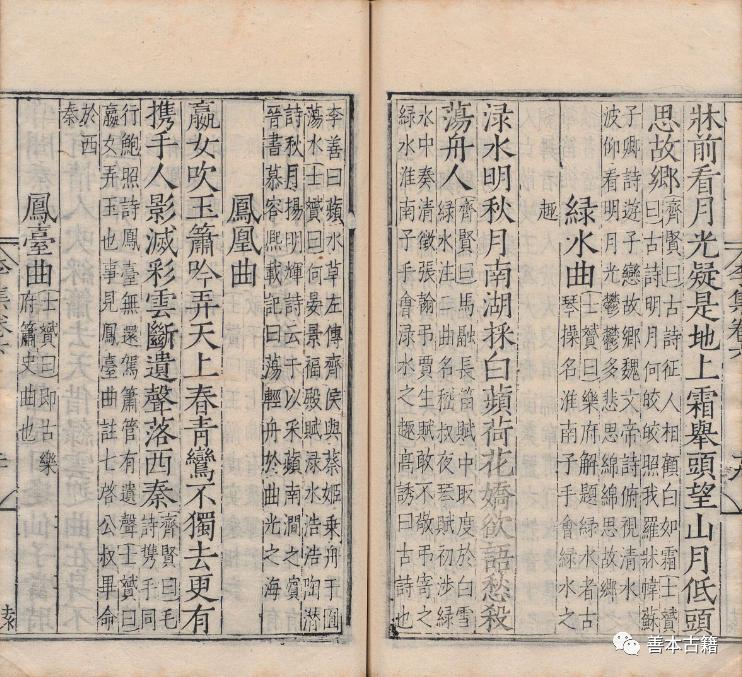 牀前看月光疑是地上霜舉頭望山月低頭
思故鄉
齊賢曰古詩征人相顧白如霜士贇
曰古詩明月何皎皎照我羅牀幃蘇
子卿詩遊子戀故鄉魏文帝詩俯視清水
波仰看明月光鬱鬱多悲思綿綿思故鄉
緑水曲
士贇曰樂府解題緑水者古
琴操名淮南子手會緑水之
趣
渌水明秋月南湖採白蘋荷花嬌欲語愁殺
蕩舟人
齊賢曰馬融長笛賦中取度於白雪
緑水注二曲名嵇叔夜琴賦初涉緑
水中奏清徵張翰弔賈生賦敢不敬弔寄之
緑水淮南子手會渌水之趣高誘曰古詩也
李善曰蘋水草左傳齊侯與蔡姬乘舟于囿
蕩水士贇曰何晏景福殿賦渌水浩浩陶
詩秋月揚明輝詩云于以采蘋南澗之濱
晉書慕容熙載記曰蕩輕舟於曲光之海
鳳凰曲
嬴女吹玉簫吟弄天上春青鸞不獨去更有
携手人影滅彩雲斷遺聲落西秦
齊賢曰毛
詩携手同
行鮑照詩鳳臺無還駕簫管有遺聲士贇曰
嬴女弄玉也事見鳳臺曲註七啓公叔畢命
於西
秦
鳳臺曲
士贇曰即古樂
府簫史曲也
善本古籍